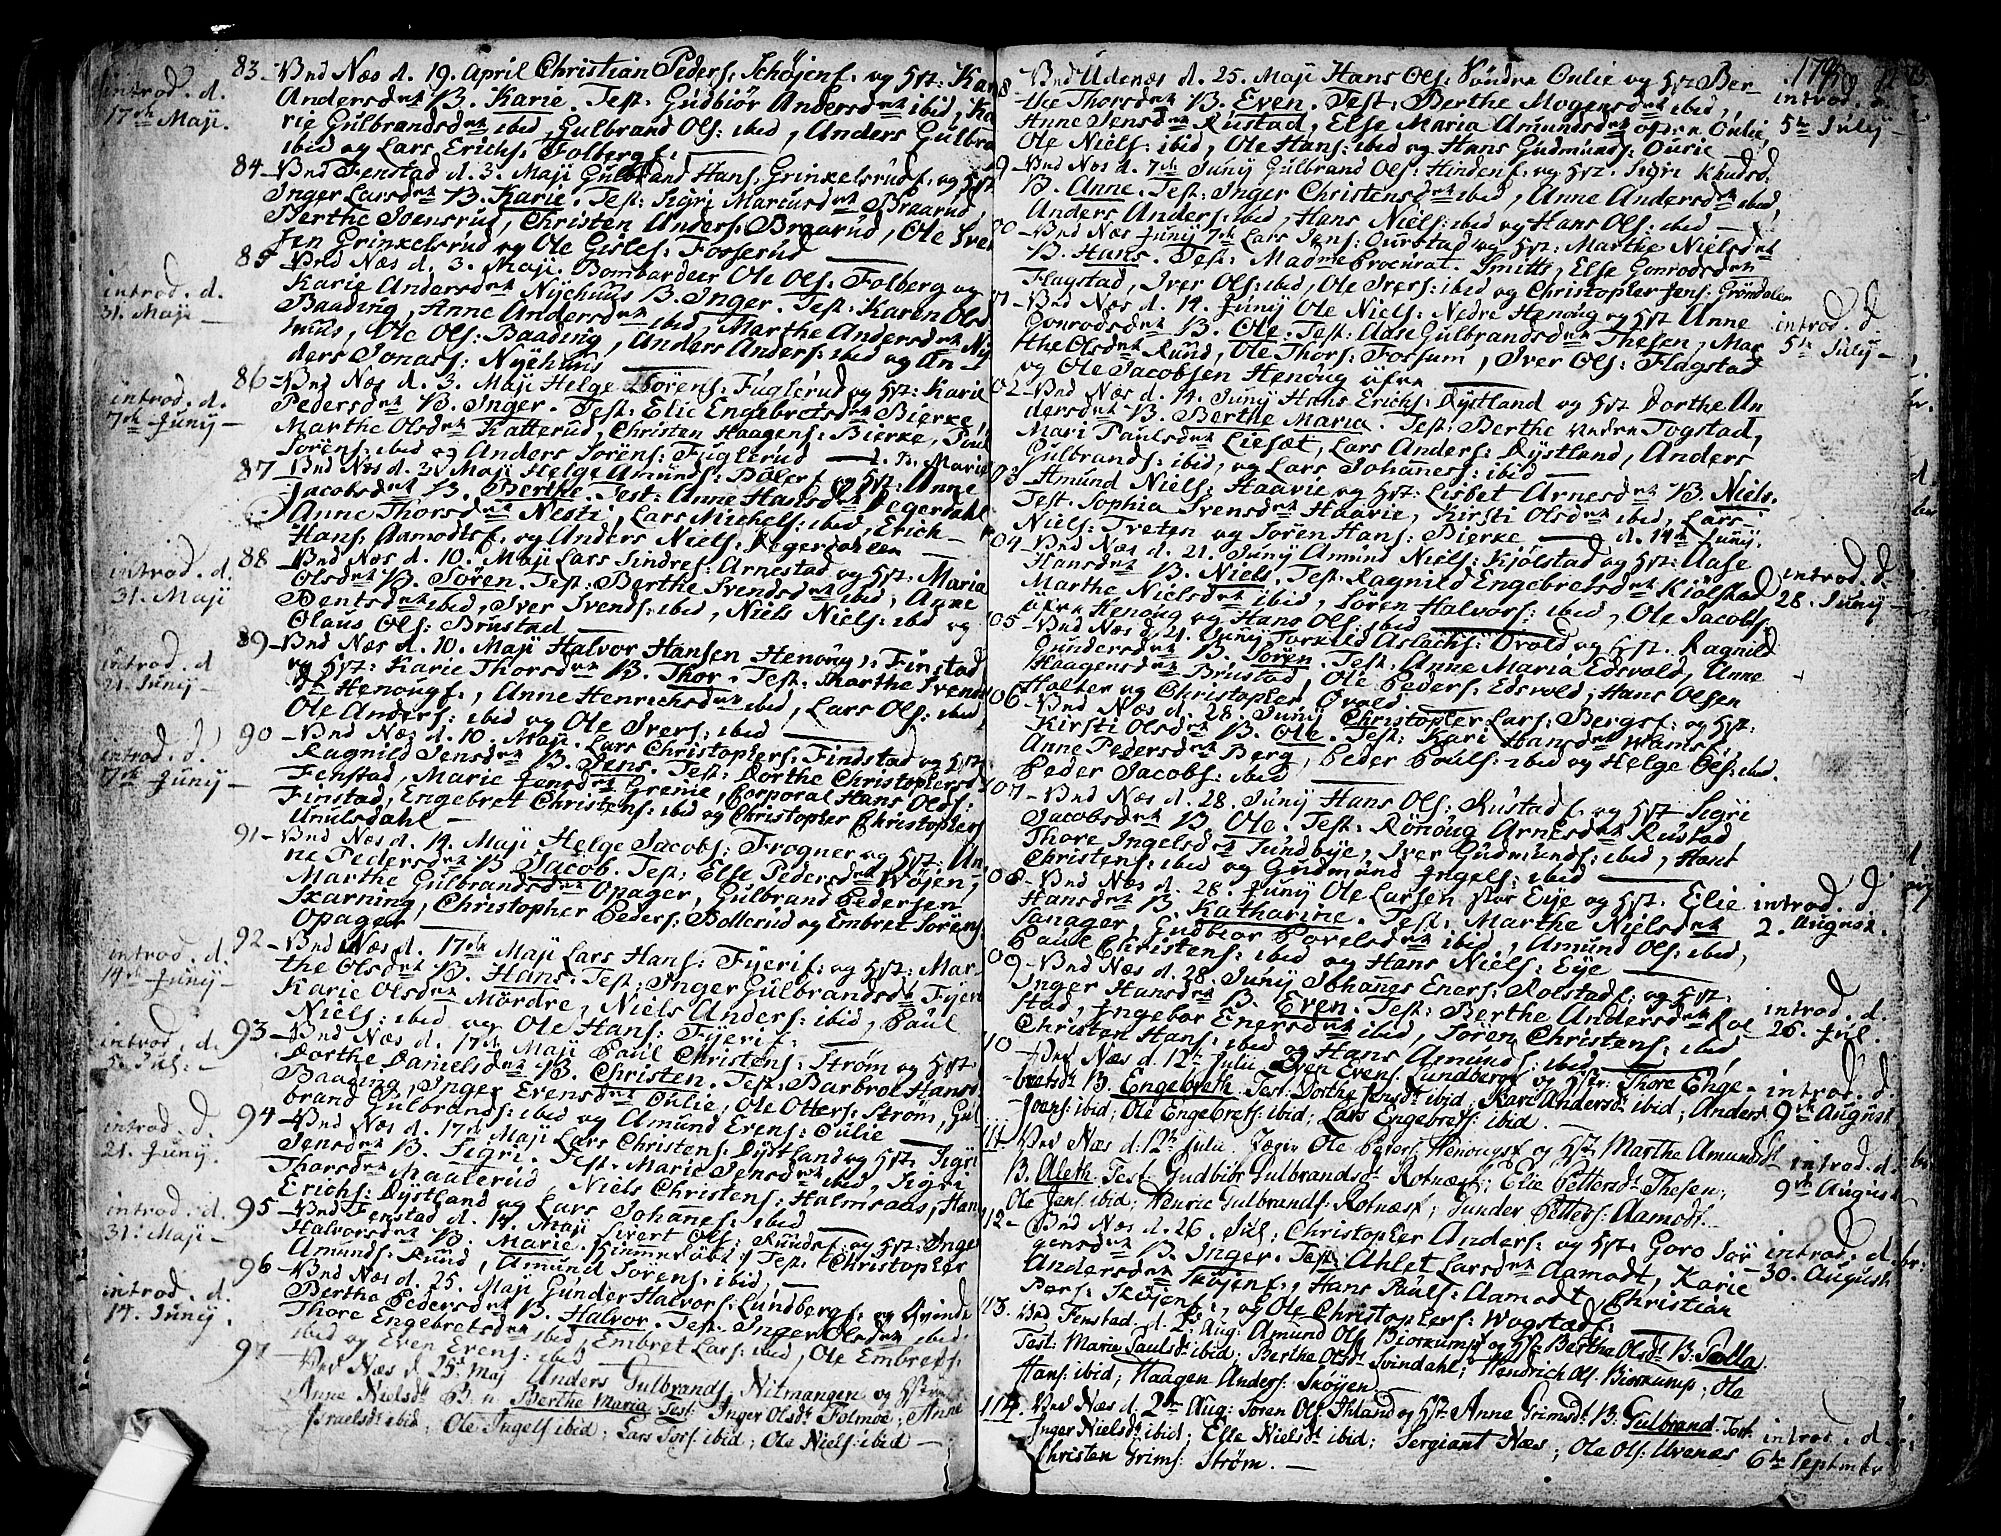 introd. d.
17de Maji.
83 - Bnd Næs d. 19. April Christian Peders: Schøjens: og Hst: Kari
Andersdtr B. Karie. Test: Gudbiør Andersdtr ibid, Ka
rie Gulbrandsdtr ibid, Gulbrand Ols: ibid, Anders Gulbra
ibid og Lars Erichs: Folbergs:
84 - Bnd Fenstad d. 3. Maji Gulbrand Hans: Grinkelsruds: og Hst
Inger Larsdtr B. Karie. Test: Sigri Marcusdtr Braarud,
Berthe Svensrud, Christen Anders: Braarud, Ole Sven
sen Grinkelsrud og Ole Gisles: Fosserud
introd. d.
31. Maji
85 - Bnd Næs d. 3. Maji. Bombardeer Ole Ols: Folberg og
Karie Andersdtr Nyehuus B. Inger. Test: Karen Olsd
Baading, Anne Andersdtr ibid, Marthe Andersdtr Ny
huus, Ole Ols: Baading, Anders Anders: ibid og An-
ders Jonass: Nyehuus
introd. d.
7de Junij
86 - Bnd Næs d. 3. Maji Helge Sørens: Fuglerud og Hst: Karie
Pedersdtr B. Inger. Test: Elie Engebretsdtr Bierke,
Marthe Olsdtr Katterud, Christen Haagens: Bierke, Poul
Sørens: ibid og Anders Sørens: Fuglerud
87 - Bnd Næs d. 3. Maji Helge Amunds: Bølers: og Hst: Anne Marie
Jacobsdtr B. Berthe. Test: Anne Hansdtr Degerdahl
Anne Thorsdtr Nesti, Lars Michels: ibid, Erich
Hans: Aamodts: og Anders Niels: Degerdahlen
introd. d.
31. Maji
88 - Bnd Næs d. 10. Maji Lars Sindres: Arnestad og Hst: Maria
Olsdtr B. Søren. Test: Berthe Svendsdtr ibid, Anne
Bentsdtr ibid, Iver Svends: ibid, Niels Niels: ibid og
Olaus Ols: Brustad
introd. d.
21. Junij
89 - Bnd Næs d. 10. Maji Halvor Hansen Henoug: Finstad
og Hst: Karie Thorsdtr B. Thor. Test: Marthe Svends
dtr Henougs:, Anne Henrichsdtr ibid, Lars Ols: ibid,
Ole Anders: ibid og Ole Ivers: ibid
introd. d.
7de Junij
90 - Bnd Næs d. 10. Maji. Lars Christophers: Findstad og Hst:
Ragnild Jensdtr B. Jens. Test: Dorthe Christophersd
Fenstad, Marie Jensdtr Grenie, Corporal Hans Ols:
Finstad, Engebret Christens: ibid og Christopher Christophers
Amilsdahl
91 - Bnd Næs d. 14. Maji Helge Jacobs: Frogner og Hst: An-
ne Pedersdtr B. Jacob. Test: Else Pedersdtr Wøjen,
Marthe Gulbrandsdtr Opager, Gulbrand Pedersen
Skarning, Christopher Peders: Bollerud og Embret Sørens
Opager
introd. d.
14de Junij
92 - Bnd Næs d. 17de Maji Lars Hans: Fijeris: og Hst: Mar-
the Olsdtr B. Hans. Test: Inger Gulbrandsdtr Fijeri
Karie Olsdtr Mørdre, Niels Anders: ibid, Paul
Niels: ibid og Ole Hans: Fijeris:
introd. d.
5. Jul:
93 - Bnd Næs d. 17de Maji Paul Christens: Strøm og Hst:
Dorthe Danielsdtr B. Christen. Test: Barbroe Hansd
Baading, Inger Evensdtr Oulie, Ole Otters: Strøm, Gul
brand Gulbrands: ibid og Amund Evens: Oulie
introd. d.
21. Junij.
94 - Bnd Næs d. 17d Maji Lars Christens: Dystland og Hst: Sigri
Jensdtr B. Sigri. Test: Marie Jensdtr ibid, Sigri
Thorsdtr Maalerud, Niels Christens: Halmsaas, Hans
Erichs: Dystland og Lars Johanes: ibid
introd. d.
31. Maji
95 - Bnd Fenstad d. 17. Maji Sivert Ols: Ruuds: og Hst: Inge
Halvorsdtr B. Marie. Test: Christopher
Amunds: Ruud, Amund Sørens: ibid,
introd. d.
14. Junij.
96 - Bnd Næs d. 25. Maji Gunder Halvors: Lundbergs: og Qvinde
Berthe Pedersdtr B. Halvor. Test: Inger Olsdtr ibid.
Thore Engebretsdtr ibid, Embret Lars: ibid, Ole Embrets:
ibid og Even Evens: ibid
97 Bnd Næs d 25d Maj Anders Gulbrands: Nitmangen og Hstr
Anne Nielsdtr B. n Berthe Maria Test: Inger Olsdtr Tolmoe; Anne
Israelsdtr ibid; Ole Ingels: ibid; Lars Tors: ibid; Ole Niels: ibid
1795
8 - Bnd Udenæs d. 25. Maji Hans Ols: Søndre Oulie og Hst Ber-
the Thorsdtr B. Even. Test: Berthe Mogensdtr ibid,
Anne Jensdtr Rustad, Else Maria Amundsdtr ofen Oulie,
Ole Niels: ibid, Ole Hans: ibid og Hans Gudmunds: Oulie
introd. d.
5te Julij
9 - Bnd Næs d. 7de Junij Gulbrand Ols: Hindens: og Hst. Sigri Knudsd.
B. Anne. Test: Inger Christensdtr ibid, Anne Andersdtr ibid,
Anders Anders: ibid, Hans Niels: ibid og Hans Ols: ibid
00 - Bnd Næs Junij 7de Lars Jens: Ourstad og Hst: Marthe Nielsdtr
B. Hans. Test: Madme Procurat. Smitts, Else Gonrodsdtr
Flagstad, Iver Ols: ibid, Ole Ivers: ibid og Christopher Jens: Grøndalen
01 - Bnd Næs d. 14. Junij Ole Niels: Nedre Henoug og Hst Anne
Gonrodsdtr B. Ole. Test: Aase Gulbrandsdtr Thesen, Mar
the Olsdtr Ruud, Ole Thors: Fossum, Iver Ols: Flagstad
og Ole Jacobsen Henoug øfre
introd. d.
5te Julij
02 - Bnd Næs d. 14. Junij Hans Erichs: Dystland og Hst Dorthe An
dersdtr B. Berthe Maria. Test: Berthe nedre Togstad,
Mari Paulsdtr Liesæt, Lars Anders: Dystland, Anders
Gulbrands: ibid, og Lars Johanes: ibid
03 - Amund Niels: Haavie og Hst: Lisbet Arnesdtr B. Niels.
Test. Sophia Svensdtr Haavie, Kirsti Olsdtr ibid, Lars
Niels: Tveten og Søren Hans: Bierke d. 14de Junij.
04 - Bnd Næs d. 21. Junij Amund Niels: Kjølstad og Hst: Aase
Hansdtr B. Niels. Test: Ragnild Engebretsdtr Kiølstad
Marthe Nielsdtr ibid, Søren Halvors: ibid, Ole Jacobs:
øfre Henoug og Hans Ols: ibid
introd. d.
28. Junij
05 - Bnd Næs d. 21. Junij Torkild Aslachs: Ovold og Hst. Ragnild
Gundersdtr B. Søren. Test: Anne Maria Edsvold, Anne
Haagensdtr Brustad, Ole Peders: Edsvold, Hans Olsen
Holter og Christopher Ovold
06 - Bnd Næs d. 28. Junij Christopher Lars: Bergs: og Hst:
Kirsti Olsdtr B. Ole. Test: Kari Hansdtr Wams:,
Anne Pedersdtr Berg, Peder Pouls: ibid og Helge Ols: ibid.
Peder Jacobs: ibid
07 - Bnd Næs d. 28. Junij Hans Ols: Rustads: og Hst Sigri
Jacobsdtr B. Ole. Test: Rønoug Arnesdtr Rustad
Thore Ingelsdtr Sundbye, Iver Gudmunds: ibid, Hans
Christens: ibid og Gudmund Ingels: ibid
08 - Bnd Næs d. 28. Junij Ole Larsen stor Eye og Hst: Elie
Hansdtr B. Katharine. Test: Marthe Nielsdtr
Panager, Gudbiør Povelsdtr ibid, Amund Ols: ibid,
Paul Christens: ibid og Hans Niels: Eye
introd. d.
2. August.
09 - Bnd Næs d. 28. Junij Johanes Eners: Rolstads: og Hst:
Inger Hansdtr B. Even. Test: Berthe Andersdtr Rol
stad, Ingebor Enersdtr ibid, Søren Christens: ibid
Christen Hans: ibid og Hans Amunds: ibid
introd. d.
26. Jul.
10 - Bnd Næs d. 12te Julii Even Evens: Lundbergs: og Hstr: Thore Enge-
bretsdtr B. Engebreth Test: Dorthe Jensdtr ibid; Kari Andersdtr ibid, Anders
Joens: ibid; Ole Engebrets: ibid; Lars Engebrets: ibid.
introd. d.
9de August
111 Bnd Næs d. 12te Julii Jæger Ole Peters: Henougs: og Hstr Marthe Amundsdtr
B. Aleth. Test Gudbiør Gulbrandsdtr Rotnæs:; Elie Pettersdtr Thesen;
Ole Jens: ibid; Henric Gulbrands: Rotnæs:, Gunder Petters: Aamodt.
introd. d.
9de August
12 - Bnd Næs d. 26. Jul, Christopher Anders: og Hst: Goro Jør
gensdtr B. Inger. Test: Ahlet Larsdtr Aamodt, Karie
Andersdtr Skøjens:, Hans Pauls: Aamodt, Christian
Pers: Skøjens:, og Ole Christophers: Wogstads:
introd. d.
30. August
113. Bnd Fenstad. d. 2. Aug: Amund Ols: Biørkump og Hst: Berthe Olsdtr B: Polla.
Test: Marie Paulsdtr ibid; Berthe Olsdtr Svindahl; Hendrich Ols: Biørkump; Ole
Hans: ibid; Haagen Anders: Skøyen
114. Bnd Næs d. 2den Aug: Søren Ols: Ihland og Hstr Anne Grimsdtr B. Gulbrand. Test.
Inger Nielsdtr ibid; Else Nielsdtr ibid; Sergiant Næs; Ole Ols: Uvenæs
Christen Grims: Strøm.
introd. d.
6te Septmbr